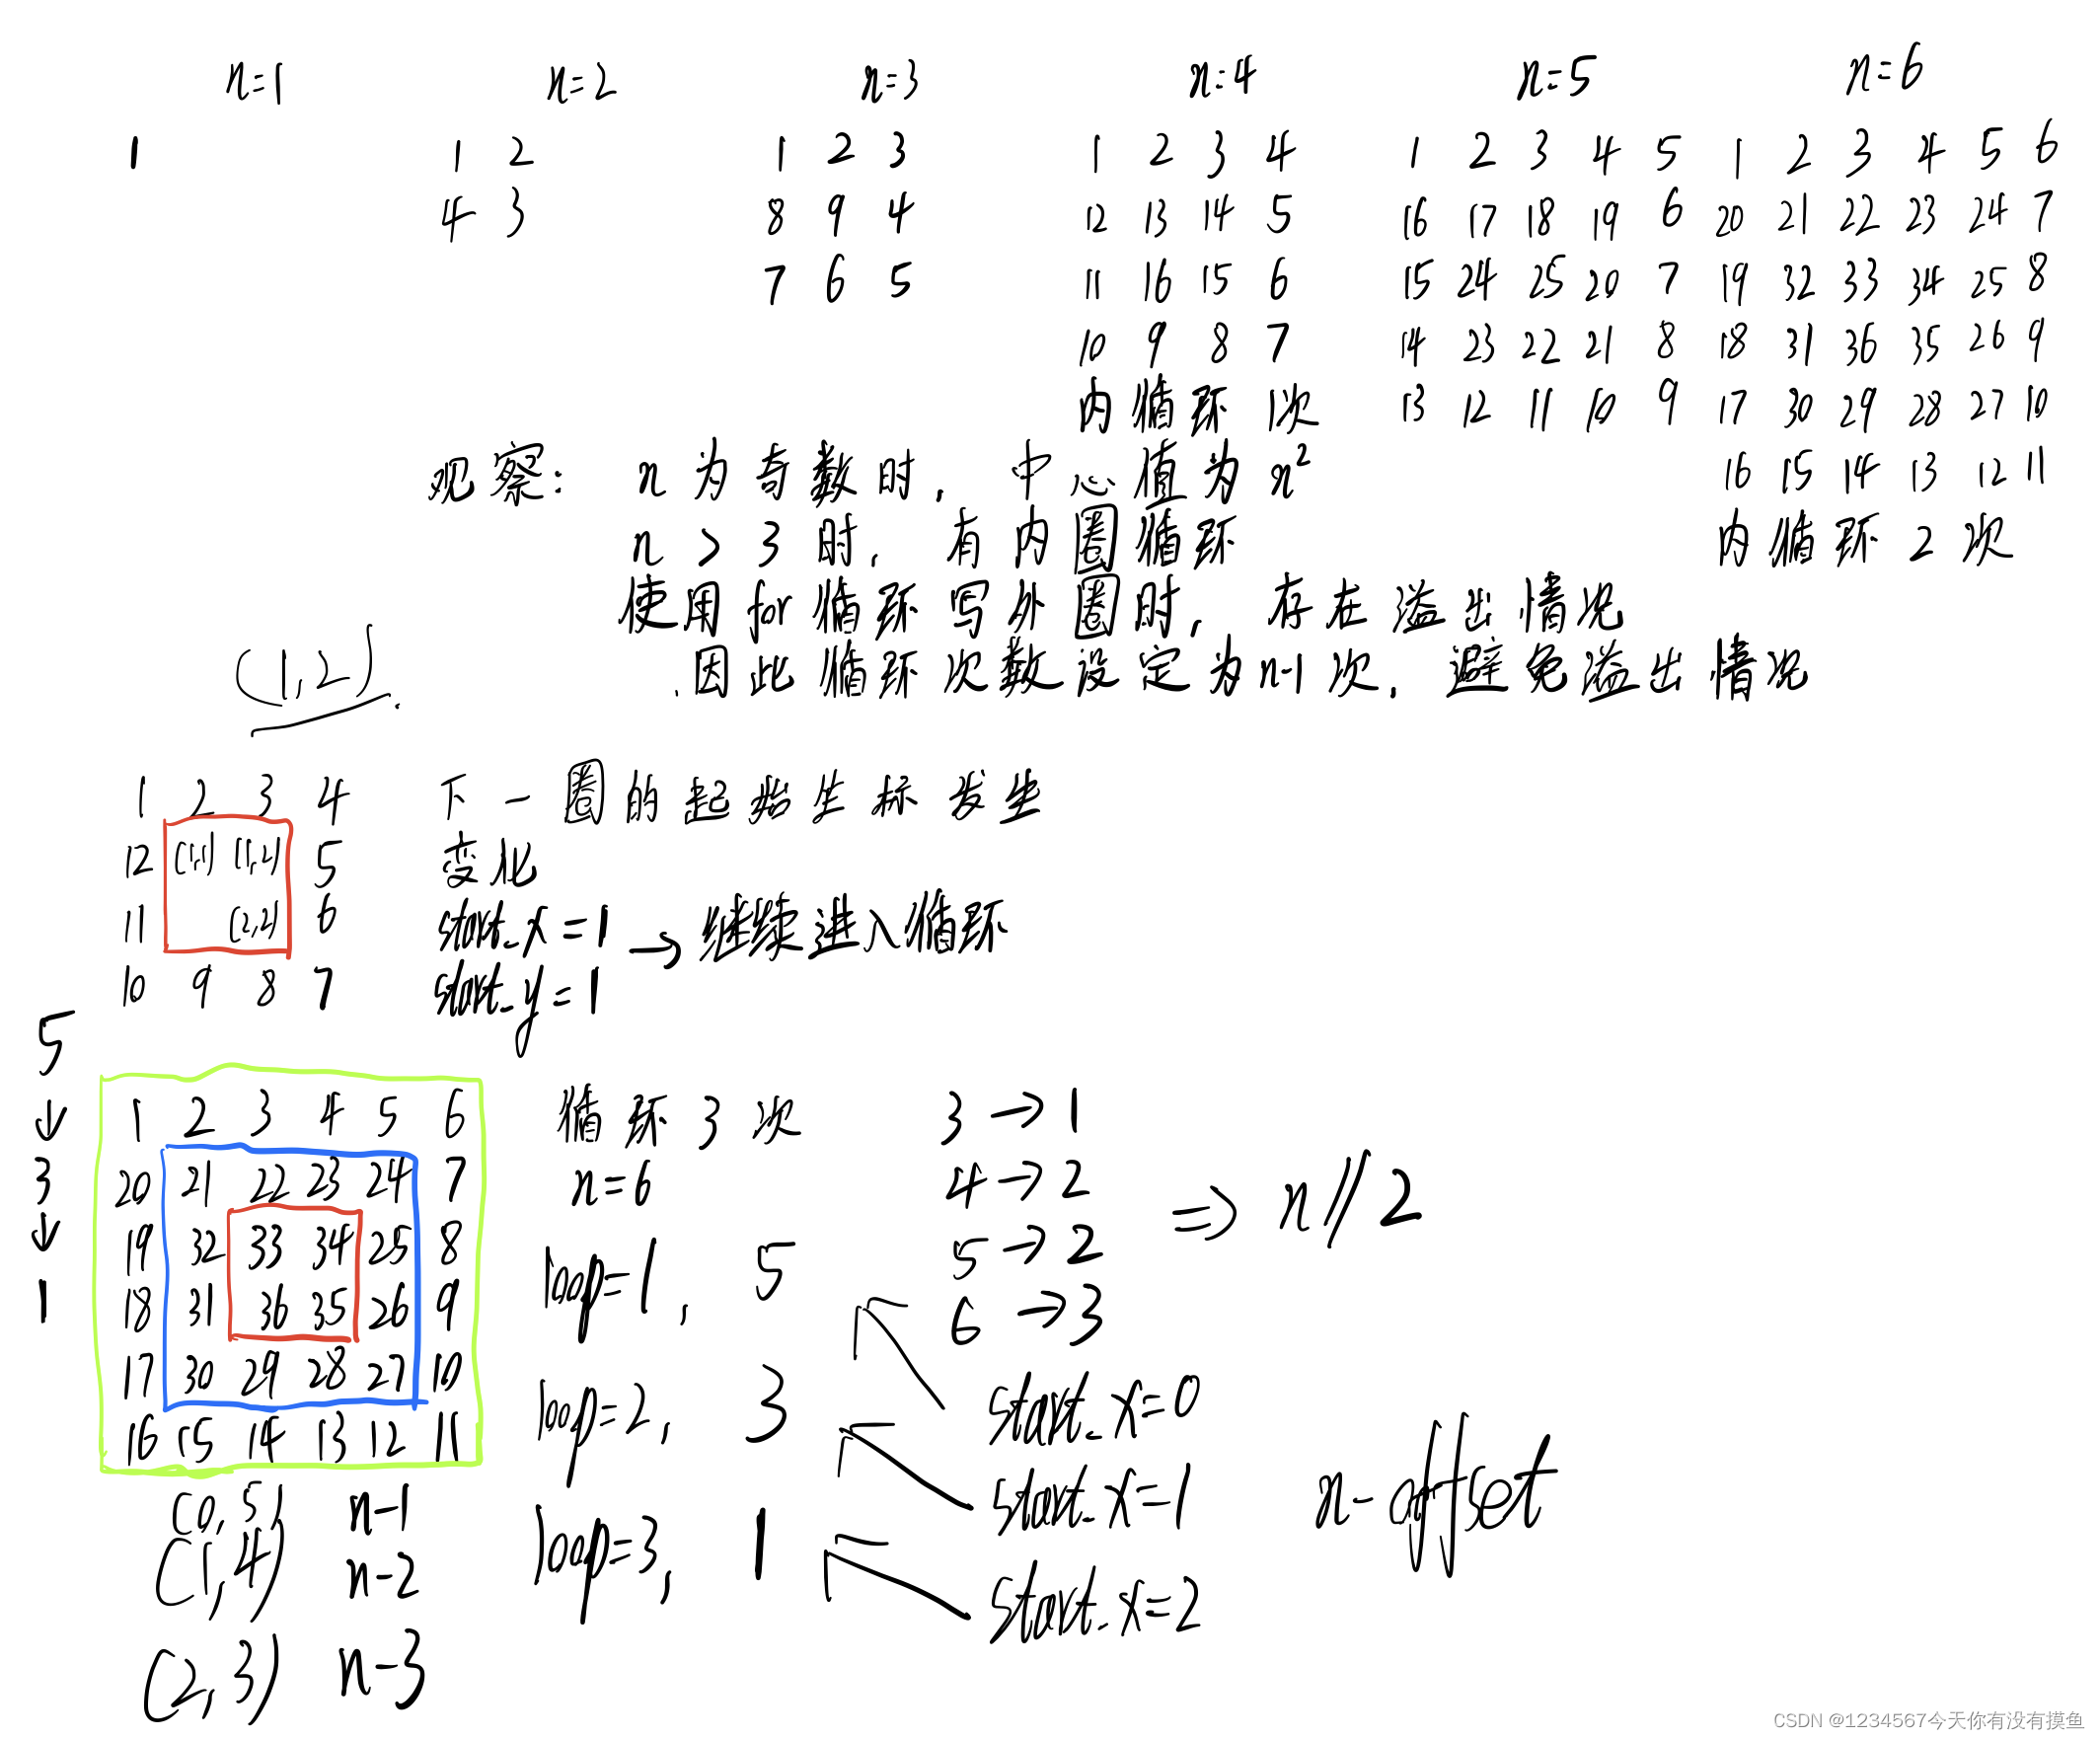 n=1 n=2 n=3 n=4 n=5 n=6
1 1 2 1 2 3 1 2 3 4 1 2 3 4 5 1 2 3 4 5 6
4 3 8 9 4 12 13 14 5 16 17 18 19 6 20 21 22 23 24 7
7 6 5 11 16 15 6 15 24 25 20 7 19 32 33 34 25 8
10 9 8 7 14 23 22 21 8 18 31 36 35 26 9
内循环1次 13 12 11 10 9 17 30 29 28 27 10
观察: n为奇数时, 中心值为n² 16 15 14 13 12 11
n > 3时, 有内圈循环 内循环2次
使用for循环写外圈时, 存在溢出情况
(1,2). 因此循环次数设定为n-1次, 避免溢出情况
1 2 3 4 下一圈的起始坐标发生
12 (1,1) (1,2) 5 变化
11 (2,2) 6 start_x=1 → 继续进入循环
10 9 8 7 start_y=1
5
↓
3
↓
1
1 2 3 4 5 6 循环3次 3→1
20 21 22 23 24 7 n=6 4→2 ⇒ n//2
19 32 33 34 25 8 loop=1, 5 5→2
18 31 36 35 26 9 6→3
17 30 29 28 27 10 loop=2, 3 start_x=0
16 15 14 13 12 11
(0,5) n-1 start_x=1 n-offset
(1,4) n-2 loop=3, 1 start_x=2
(2,3) n-3
CSDN @1234567今天你有没有摸鱼